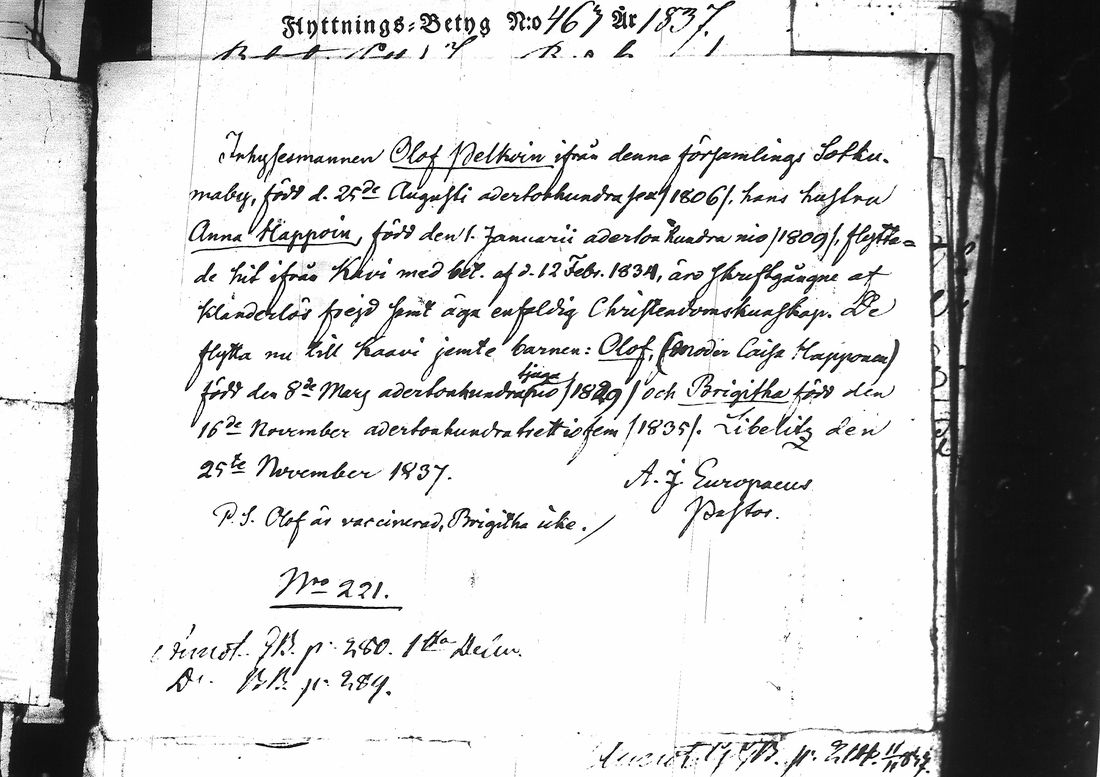 Flyttnings-Betyg N:o 467 År 1837.
Inhysesmannen Olof Pelkoin ifrån denna församlings Sotku-
maby, född d. 25de Augusti adertonhundrasex /1806/, hans hustru
Anna Happoin, född den 1. Januarii adertonhundra nio /1809/, flytta=
de hit ifrån Kavi med bet. af d. 12 Febr. 1834, äro skriftgångne af
klanderlös frejd samt äga enfaldig Christendomskunskap. De
flytta nu till Kaavi jemte barnen: Olof, (moder Caisa Happonen)
född den 8de Mars adertonhundratjugunio /1829/ och Brigitha född den
16de November adertonhundratrettiofem /1835/. Libelitz den
25te November 1837.
A. J. Europaeus
Pastor.
P.S. Olof är vaccinerad, Brigitha icke./
Nro 221.
p. 280. 1sta Delen.
Do. BB. p. 289.